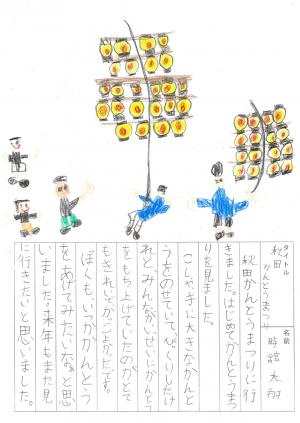 タイトル
秋田かんとうまつり
名前
時舘 大翔
秋田かんとうまつりに行
きました。はじめてかんとうまつ
りを見ました。
こしや手に大きなかんと
うをのせていて、びっくりしたけ
れどみんながいせいにかんとう
をもち上げていたのがとて
もきれいでかっこよかったです。
ぼくもいつかかんとう
をあげてみたいなぁと思
いました。来年もまた見
に行きたいと思いました。